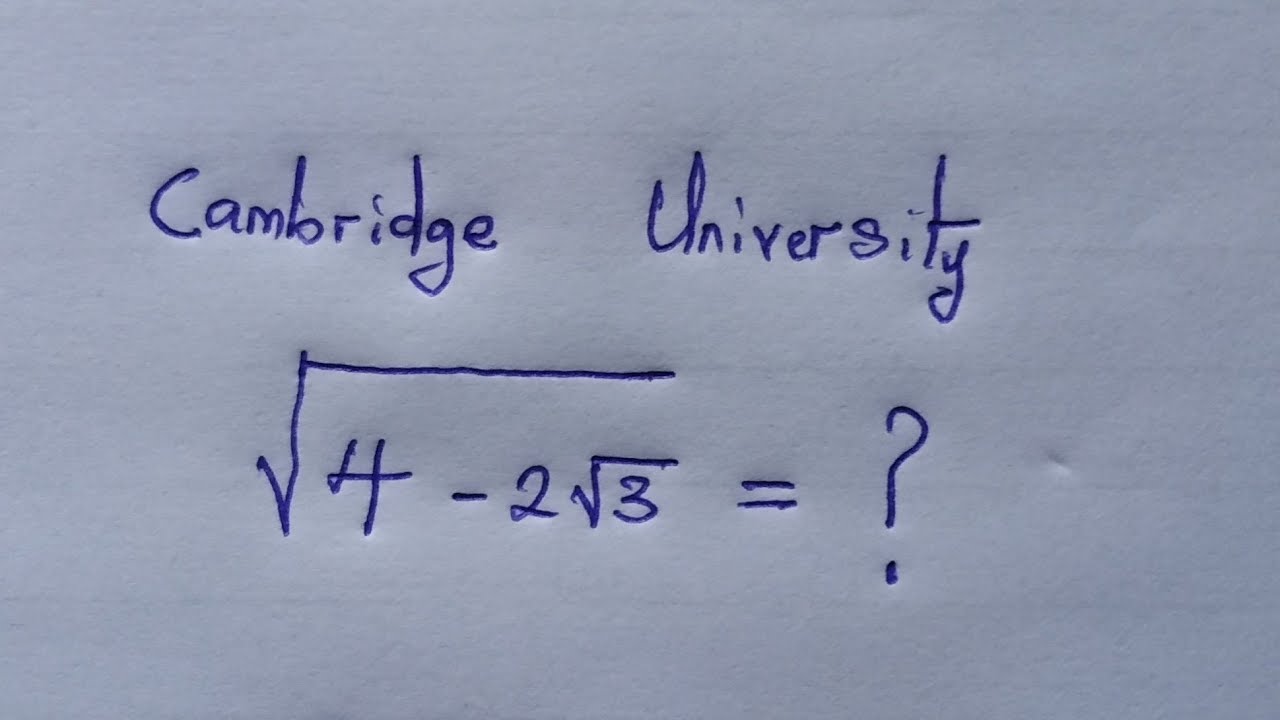 Cambridge University
√(4 - 2√3) = ?